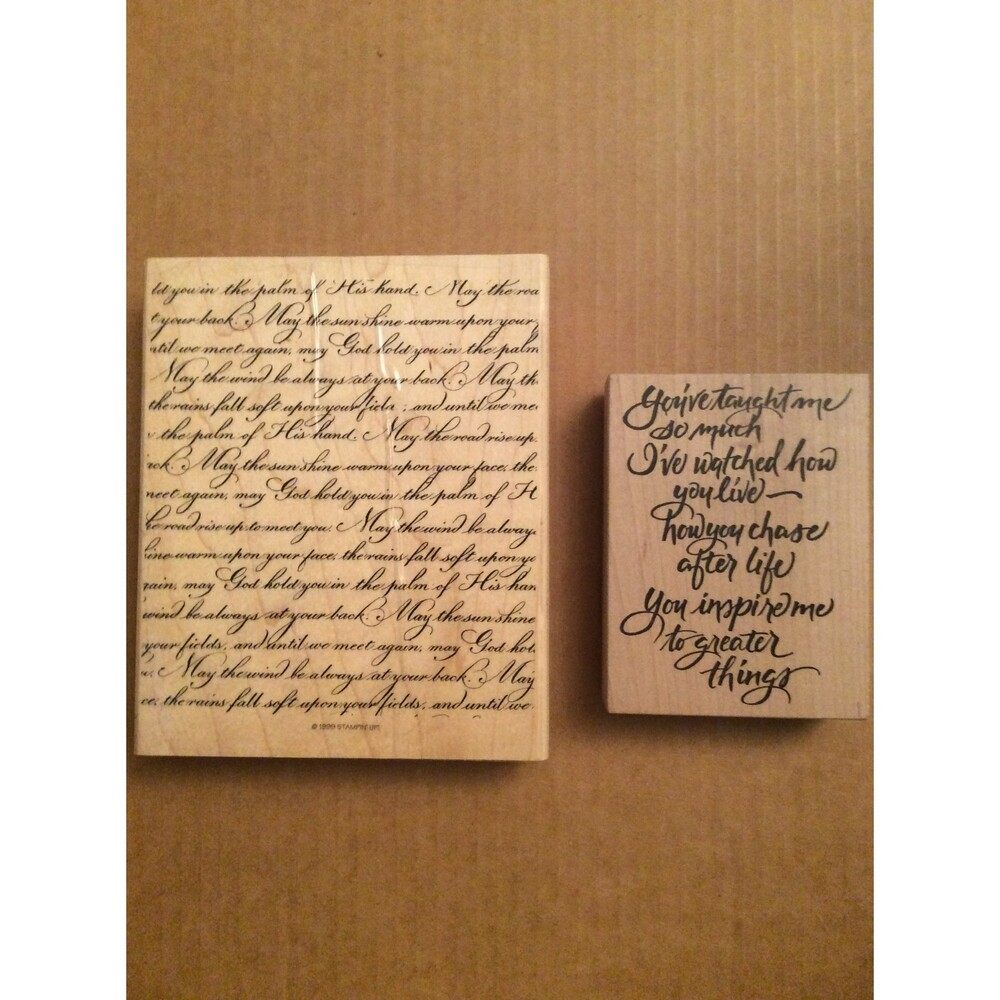 ld you in the palm of His hand. May the roa
t your back. May the sun shine warm upon your
ntil we meet again, may God hold you in the palm
May the wind be always at your back. May th
the rains fall soft upon your field , and until we me
the palm of His hand. May the road rise up
ack. May the sun shine warm upon your face, the
meet again, may God hold you in the palm of H
he road rise up to meet you. May the wind be always
hine warm upon your face, the rains fall soft upon yo
gain, may God hold you in the palm of His han
wind be always at your back. May the sun shine
your fields, and until we meet again, may God hol
u. May the wind be always at your back. May
ce, the rains fall soft upon your fields, and until we
© 1999 STAMPIN' UP!
You've taught me
so much
I've watched how
you live—
how you chase
after life
You inspire me
to greater
things